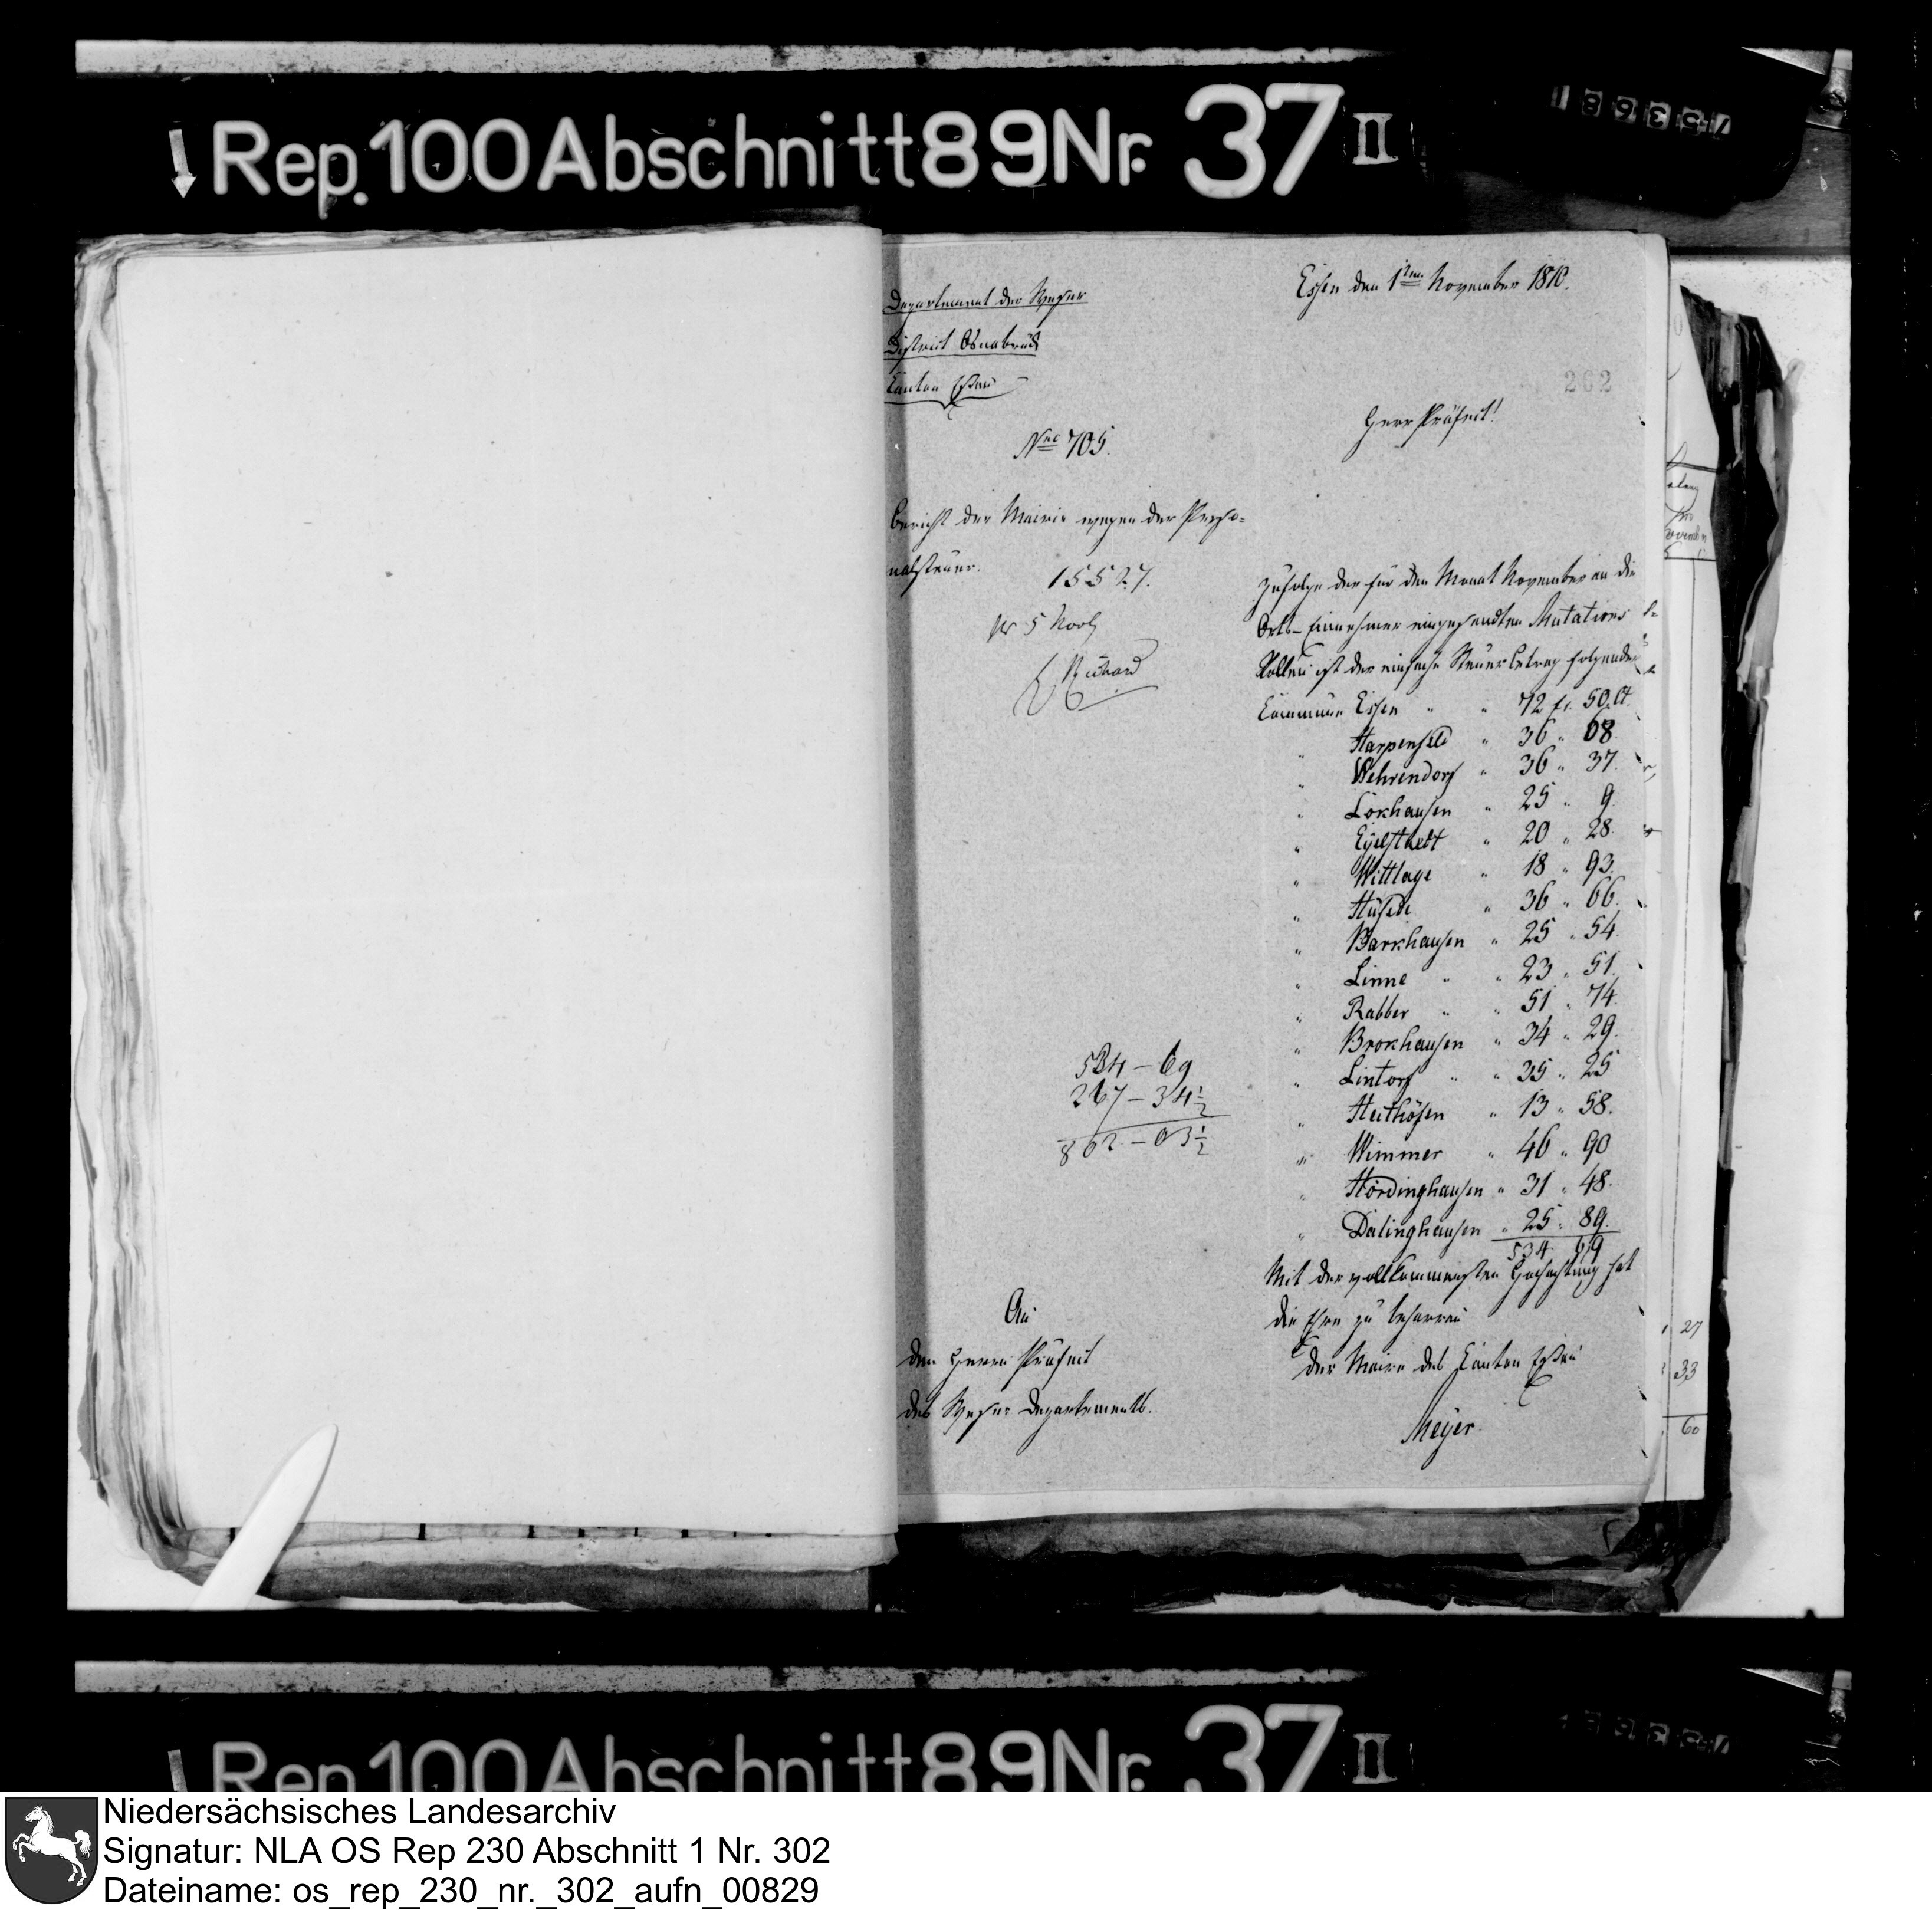 Rep. 100 Abschnitt 89 Nr. 37 II
189357
Departement der Weser
District Osnabrück
Canton Essen
Nro 705.
Bericht der Mairie wegen der Perso=
nalsteuer.
15527.
pr 5 Novb
Essen den 1ten November 1810.
262
Herr Präfect!
Zufolge der für den Monat November an die
Orts-Einnehmer eingesandten Mutations
Rollen ist der einfache Steuerbetrag folgender
Commune Essen " " 72 fr. 50 Ct.
" Harpenfeld " 36 " 68.
" Wehrendorf " 36 " 37.
" Lokhausen " 25 " 9.
" Eijelstaedt " 20 " 28.
" Wittlage " 18 " 93.
" Hüsede " 36 " 66.
" Barkhausen " 25 " 54.
" Linne " " 23 " 51.
" Rabber " " 51 " 74.
" Brokhausen " 34 " 29.
" Lintorf " " 35 " 25
" Heithöfen " 13 " 58.
" Wimmer " 46 " 90
" Hördinghausen " 31 " 48.
" Dalinghausen " 25 " 89.
534 69
534 – 69
267 – 34½
802 – 03½
Mit der vollkommensten Hochachtung hat
die Ehre zu beharren
der Maire des Canton Essen
Meyer.
An
den Herrn Präfect
des Weser Departements.
27
33
60
Rep. 100 Abschnitt 89 Nr. 37 II
Niedersächsisches Landesarchiv
Signatur: NLA OS Rep 230 Abschnitt 1 Nr. 302
Dateiname: os_rep_230_nr._302_aufn_00829